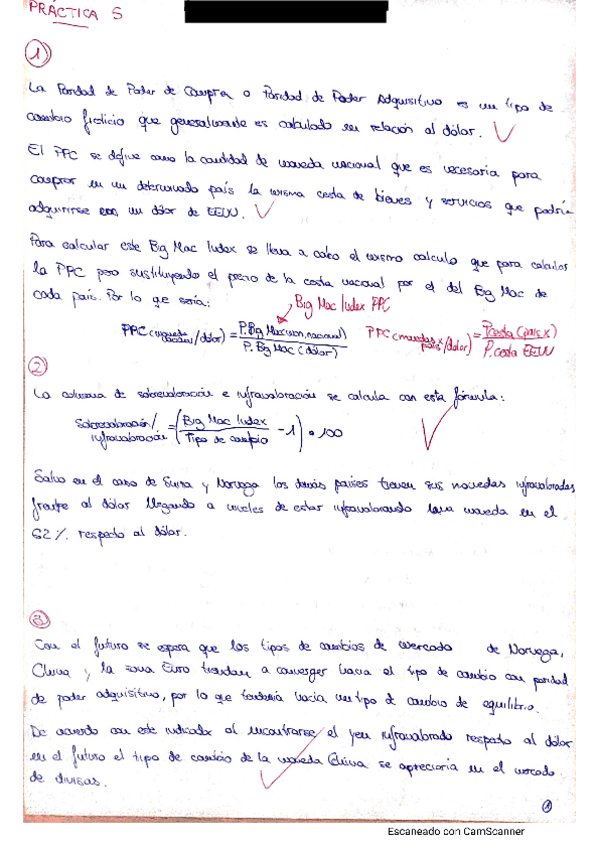 PRÁCTICA 5
1)
La Paridad de Poder de Compra o Paridad de Poder Adquisitivo es un tipo de
cambio ficticio que generalmente es calculado en relación al dólar.
El PPC se define como la cantidad de moneda nacional que es necesaria para
comprar en un determinado país la misma cesta de bienes y servicios que podría
adquirirse con un dólar de EEUU.
Para calcular este Big Mac Index se lleva a cabo el mismo calculo que para calcular
la PPC pero sustituyendo el precio de la cesta nacional por el del Big Mac de
cada país. Por lo que sería:
Big Mac Index PPC
PPC (moneda nacional/dólar) = P.Big Mac (mon. nacional) / P. Big Mac (dólar)
PPC (moneda x país/dolar) = P.cesta (país x) / P. cesta EEUU
2
La columna de sobrevaloración e infravaloración se calcula con esta fórmula:
Sobrevaloración/infravaloración = (Big Mac Index / Tipo de cambio - 1) • 100
Salvo en el caso de Suiza y Noruega los demás países tienen sus monedas infravaloradas
frente al dólar llegando a niveles de estar infravalorando una moneda en el
62% respecto al dólar.
3
Con el futuro se espera que los tipos de cambios de mercado de Noruega,
China y la zona Euro tiendan a converger hacia el tipo de cambio con paridad
de poder adquisitivo, por lo que tendería hacia un tipo de cambio de equilibrio.
De acuerdo con este indicador al encontrarse el yen infravalorado respecto al dólar
en el futuro el tipo de cambio de la moneda China se apreciaría en el mercado
de divisas.
1
Escaneado con CamScanner